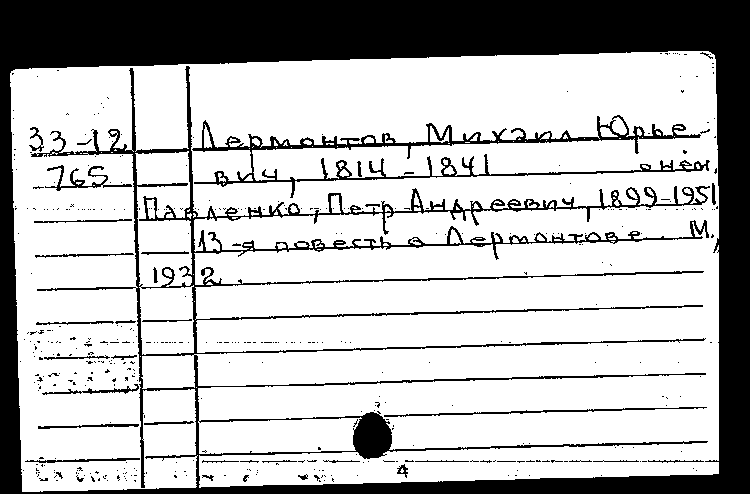 33-12 Лермонтов, Михаил Юрье-
765 вич, 1814-1841 о нём.
Павленко, Петр Андреевич, 1899-1951
13-я повесть о Лермонтове. М.,
1932.
4